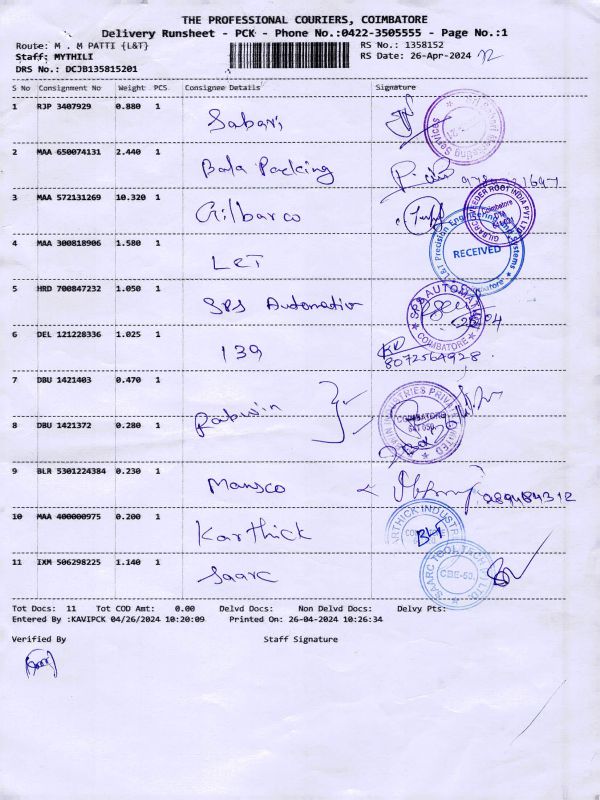 THE PROFESSIONAL COURIERS, COIMBATORE
Delivery Runsheet - PCK - Phone No.:0422-3505555 - Page No.:1
Route: M . M PATTI {L&T} RS No.: 1358152
Staff: MYTHILI RS Date: 26-Apr-2024
DRS No.: DCJB135815201
S No Consignment No Weight PCS Consignee Details Signature
1 RJP 3407929 0.880 1 Sabari
2 MAA 650074131 2.440 1 Bala Packing
3 MAA 572131269 10.320 1 Gilbarco
4 MAA 300818906 1.580 1 L&T RECEIVED
5 HRD 700847232 1.050 1 SPS Automation SPS AUTOMATION COIMBATORE
6 DEL 121228336 1.025 1 139 8072564928
7 DBU 1421403 0.470 1
8 DBU 1421372 0.280 1 COIMBATORE
9 BLR 5301224384 0.230 1 Mansco
10 MAA 400000975 0.200 1 Karthick
11 IXM 506298225 1.140 1 Saarc CBE-50.
Tot Docs: 11 Tot COD Amt: 0.00 Delvd Docs: Non Delvd Docs: Delvy Pts:
Entered By :KAVIPCK 04/26/2024 10:20:09 Printed On: 26-04-2024 10:26:34
Verified By Staff Signature